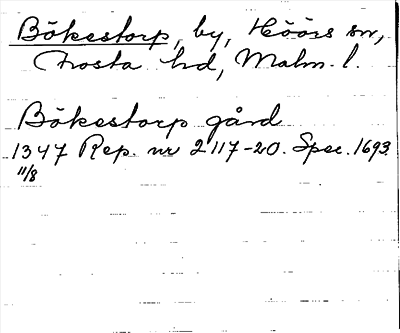 Bökestorp, by, Höörs sn,
Frosta hd, Malm. l.
Bökestorp gård
1347 Rep. nr 2117-20. Spec. 1693.
11/8